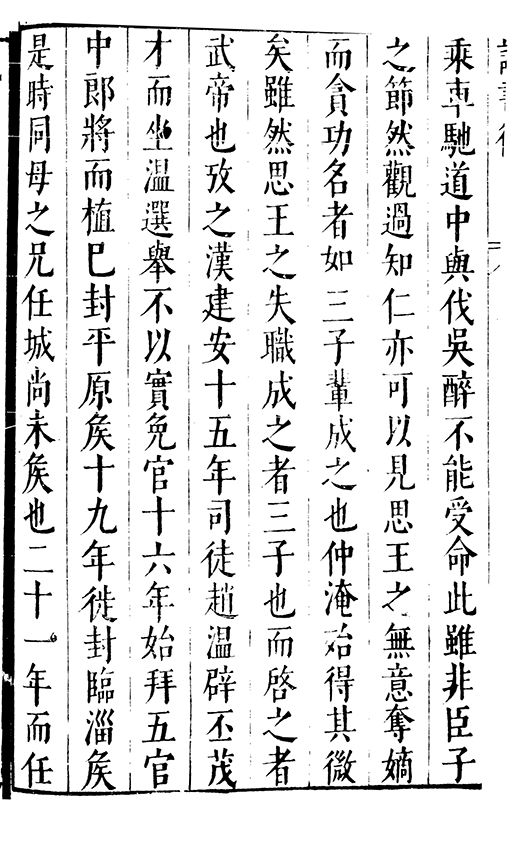 讀書後
乘車馳道中與伐吳醉不能受命此雖非臣子
之節然觀過知仁亦可以見思王之無意奪嫡
而貪功名者如三子輩成之也仲淹殆得其微
矣雖然思王之失職成之者三子也而啓之者
武帝也攷之漢建安十五年司徒趙溫辟丕茂
才而坐溫選舉不以實免官十六年始拜五官
中郎將而植巳封平原矦十九年徙封臨淄矦
是時同母之兄任城尚未矦也二十一年而任